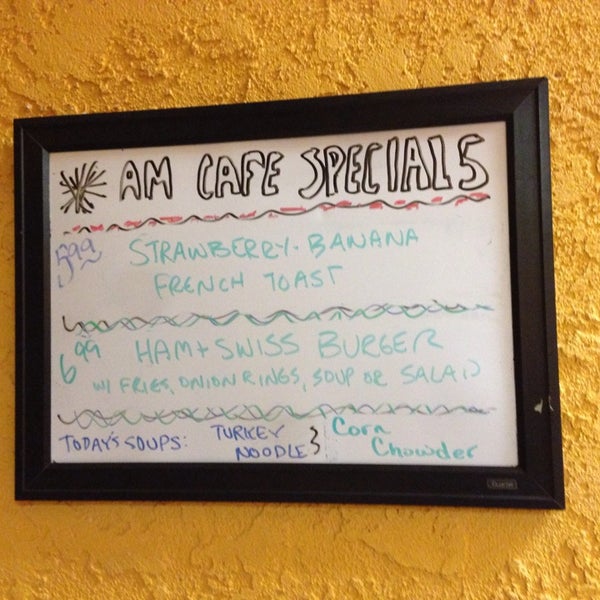 AM CAFE SPECIALS
5.99 STRAWBERRY-BANANA
FRENCH TOAST
6.99 HAM + SWISS BURGER
W/ FRIES, ONION RINGS, SOUP OR SALAD
TODAY'S SOUPS: TURKEY NOODLE } Corn Chowder